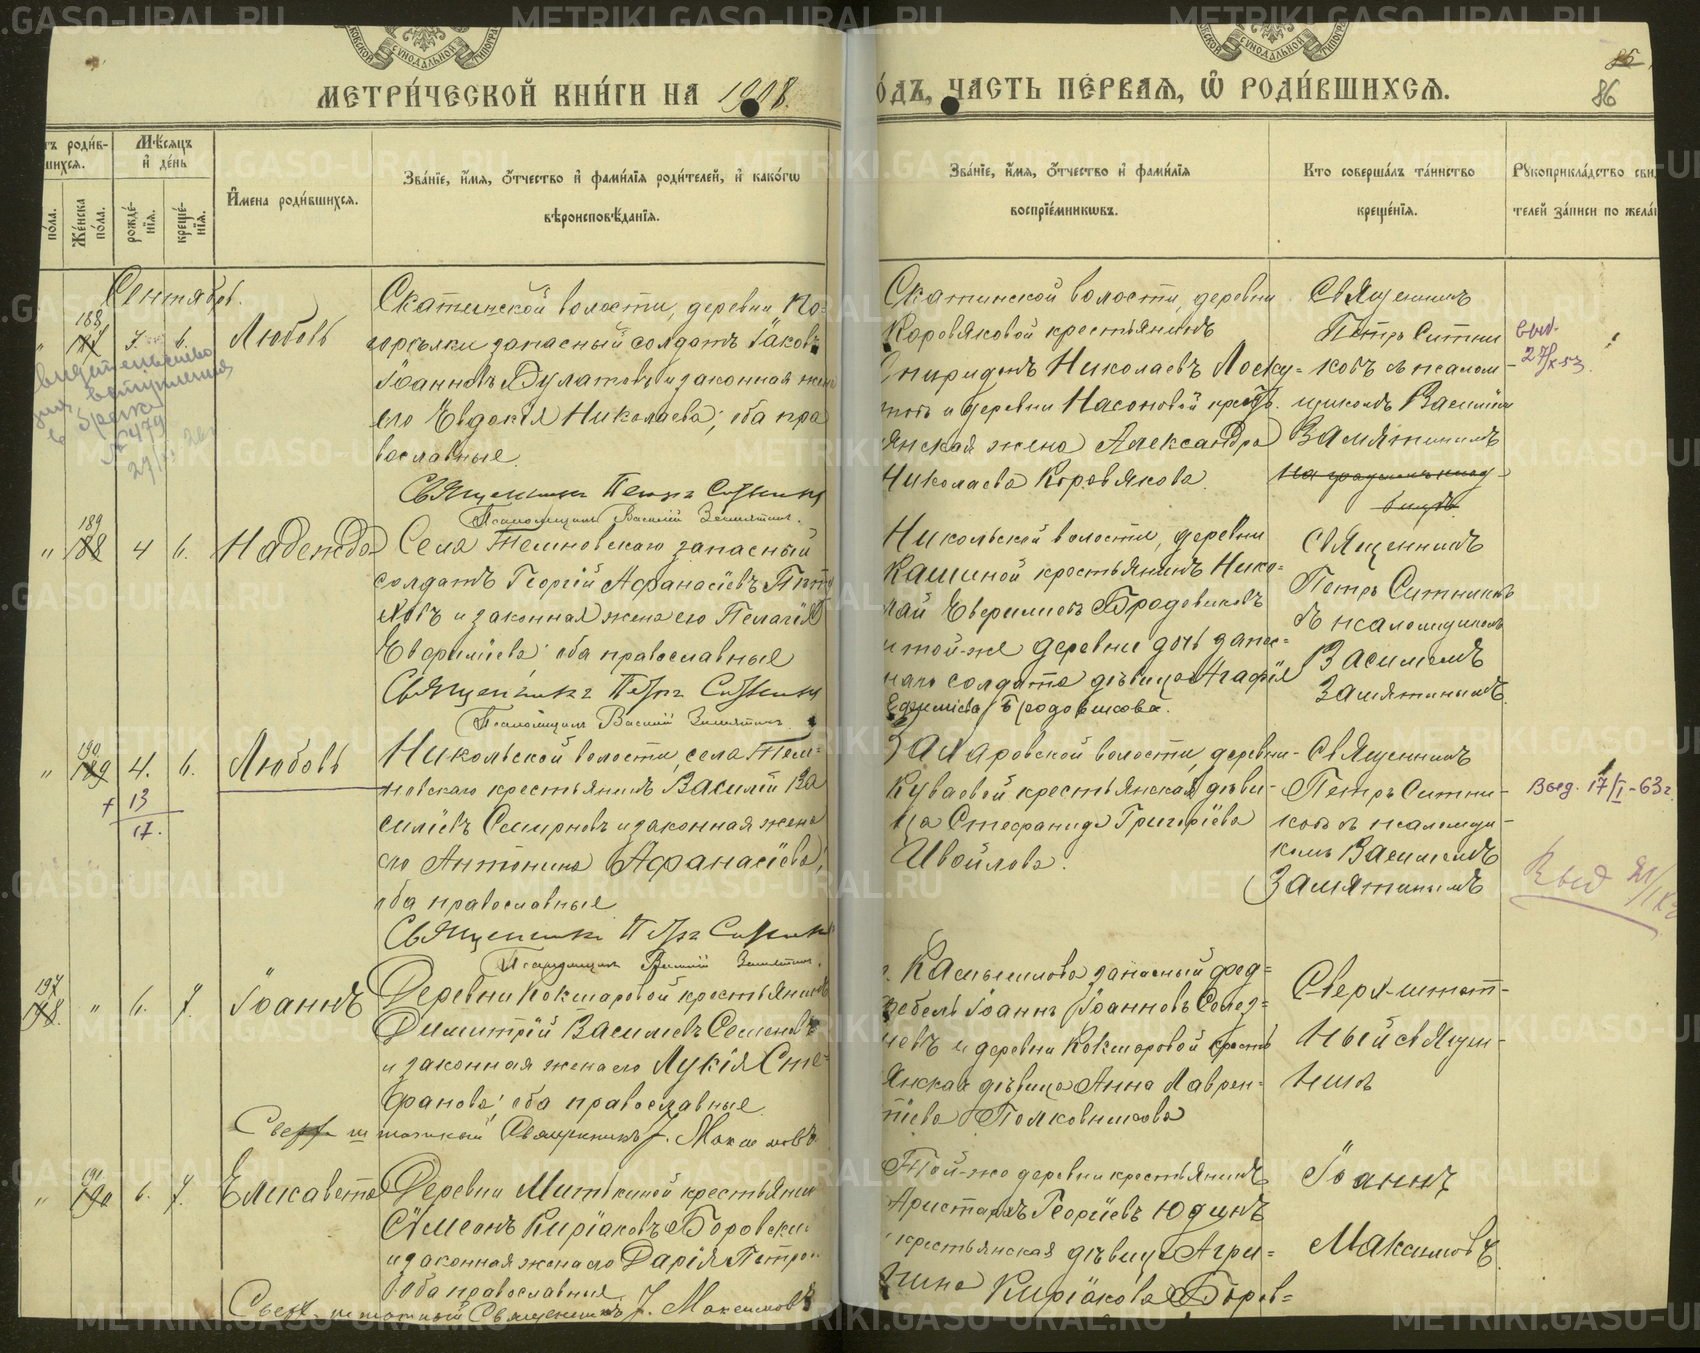 МЕТРИ́ЧЕСКОЙ КНИ́ГИ НА 1908.
ѡ́дъ, ЧАСТЬ ПЕ́РВАѦ, Ѡ҆ РОДИ́ВШИХСѦ.
86
86
тъ роди́в-
шихсѧ.
Мѣ́сѧцъ
и҆ де́нь
по́ла.
Же́нска
по́ла.
рожде́-
нїѧ.
креще́-
нїѧ.
И҆мена роди́вшихсѧ.
Зва́нїе, и҆́мѧ, ѻ҆́тчество и҆ фами́лїѧ роди́телей, и҆ како́гѡ
вѣроисповѣ́данїѧ.
Зва́нїе, и҆́мѧ, ѻ҆́тчество и҆ фами́лїѧ
воспрїе́мникѡвъ.
Кто соверша́лъ та́инство
креще́нїѧ.
Рукоприкла́дство сви
телей за́писи по жела
Сентябрь.
188
7. 6.
Любовь
Скатинской волости, деревни По-
горѣлки запасный солдатъ Іаковъ
Іоанновъ Булатовъ и законная жена
его Евдокія Николаева; оба пра
вославные.
Священникъ Петръ Ситников
Псаломщикъ Василій Замятинъ.
Скатинской волости, деревни
Коровяковой крестьянинъ
Спиридонъ Николаевъ Лоску-
товъ и деревни Насоновой крест.
янская жена Александра
Николаева Коровякова.
Священникъ
Петръ Ситни
ковъ съ псалом-
щикомъ Василіем
Замятинымъ
выд.
189
188
4 6.
Надежда
Села Темновскаго запасный
солдатъ Георгій Афанасіевъ
ковъ и законная жена его Пелагія
Евфиміева; оба православные
Священникъ Петръ Ситников
Псаломщикъ Василій Замятинъ
Никольской волости, деревни
Кашиной крестьянинъ Нико-
лай Евфиміевъ Бродовиковъ
и той-же деревни дочь запас-
наго солдата дѣвица Агафія
Ефиміева Бродовикова.
Священникъ
Петръ Ситников
съ псаломщикомъ
Василіемъ
Замятинымъ
190
189
4. 6.
+ 13
17.
Любовь
Никольской волости, села Тем-
новскаго крестьянинъ Василій Ва
силіевъ Смирновъ и законная жена
его Антонина Афанасіева;
оба православные
Священникъ Петръ Ситников
Псаломщикъ Василій Замятин.
Захаровской волости, деревни
Куваевой крестьянская дѣви-
ца Стефанида Григоріева
Ивойлова.
Священникъ
Петръ Ситни-
ковъ съ псаломщи-
комъ Василіемъ
Замятинымъ
Выд. 17/I-63г.
Выд 21/IX
197
198.
" 6. 7.
Іоаннъ
Деревни Кокшаровой крестьянинъ
Димитрій Василіевъ Семеновъ
и законная жена его Лукія Сте-
фанова; оба православные.
Сверхштатный Священникъ І. Максимовъ
г. Камышлова запасный фед-
фебель Іоаннъ Іоанновъ Селез-
невъ и деревни Кокшаровой кресть
янская дѣвица Анна Лаврен-
тіева Полковникова
Сверх-штат-
ный священ-
никъ
191
190
6. 7.
Елисавета
Деревни Митькиной крестьянин
Сѵмеонъ Киріаковъ Боровски
и законная жена его Дарія Петро
оба православныя.
Сверх-штатный Священникъ І. Максимовъ
Той-же деревни крестьянинъ
Аристархъ Георгіевъ Юдинъ
крестьянская дѣвица Агри-
пина Киріакова Боров-
Іоаннъ
Максимовъ